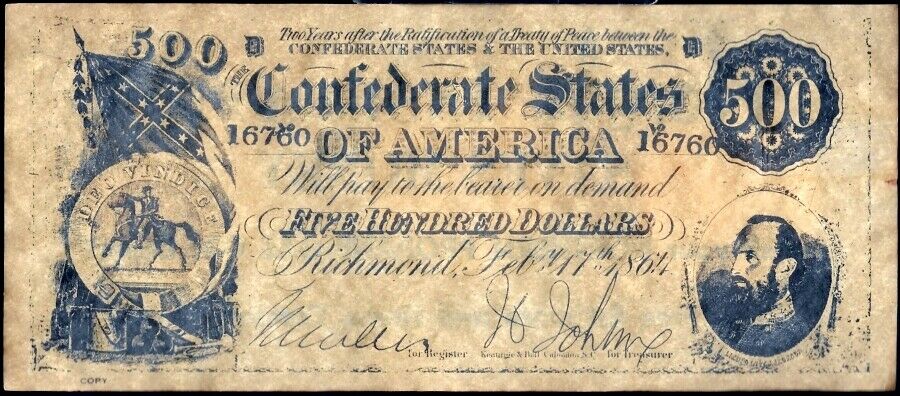 500 D Two Years after the Ratification of a Treaty of Peace between the D
CONFEDERATE STATES & THE UNITED STATES,
THE
Confederate States
500
16760 OF AMERICA 16760
Will pay to the bearer on demand
DEO VINDICE
FIVE HUNDRED DOLLARS
Richmond, Feby. 17th, 1864
for Register Keatinge & Ball Columbia, S.C. for Treasurer
COPY